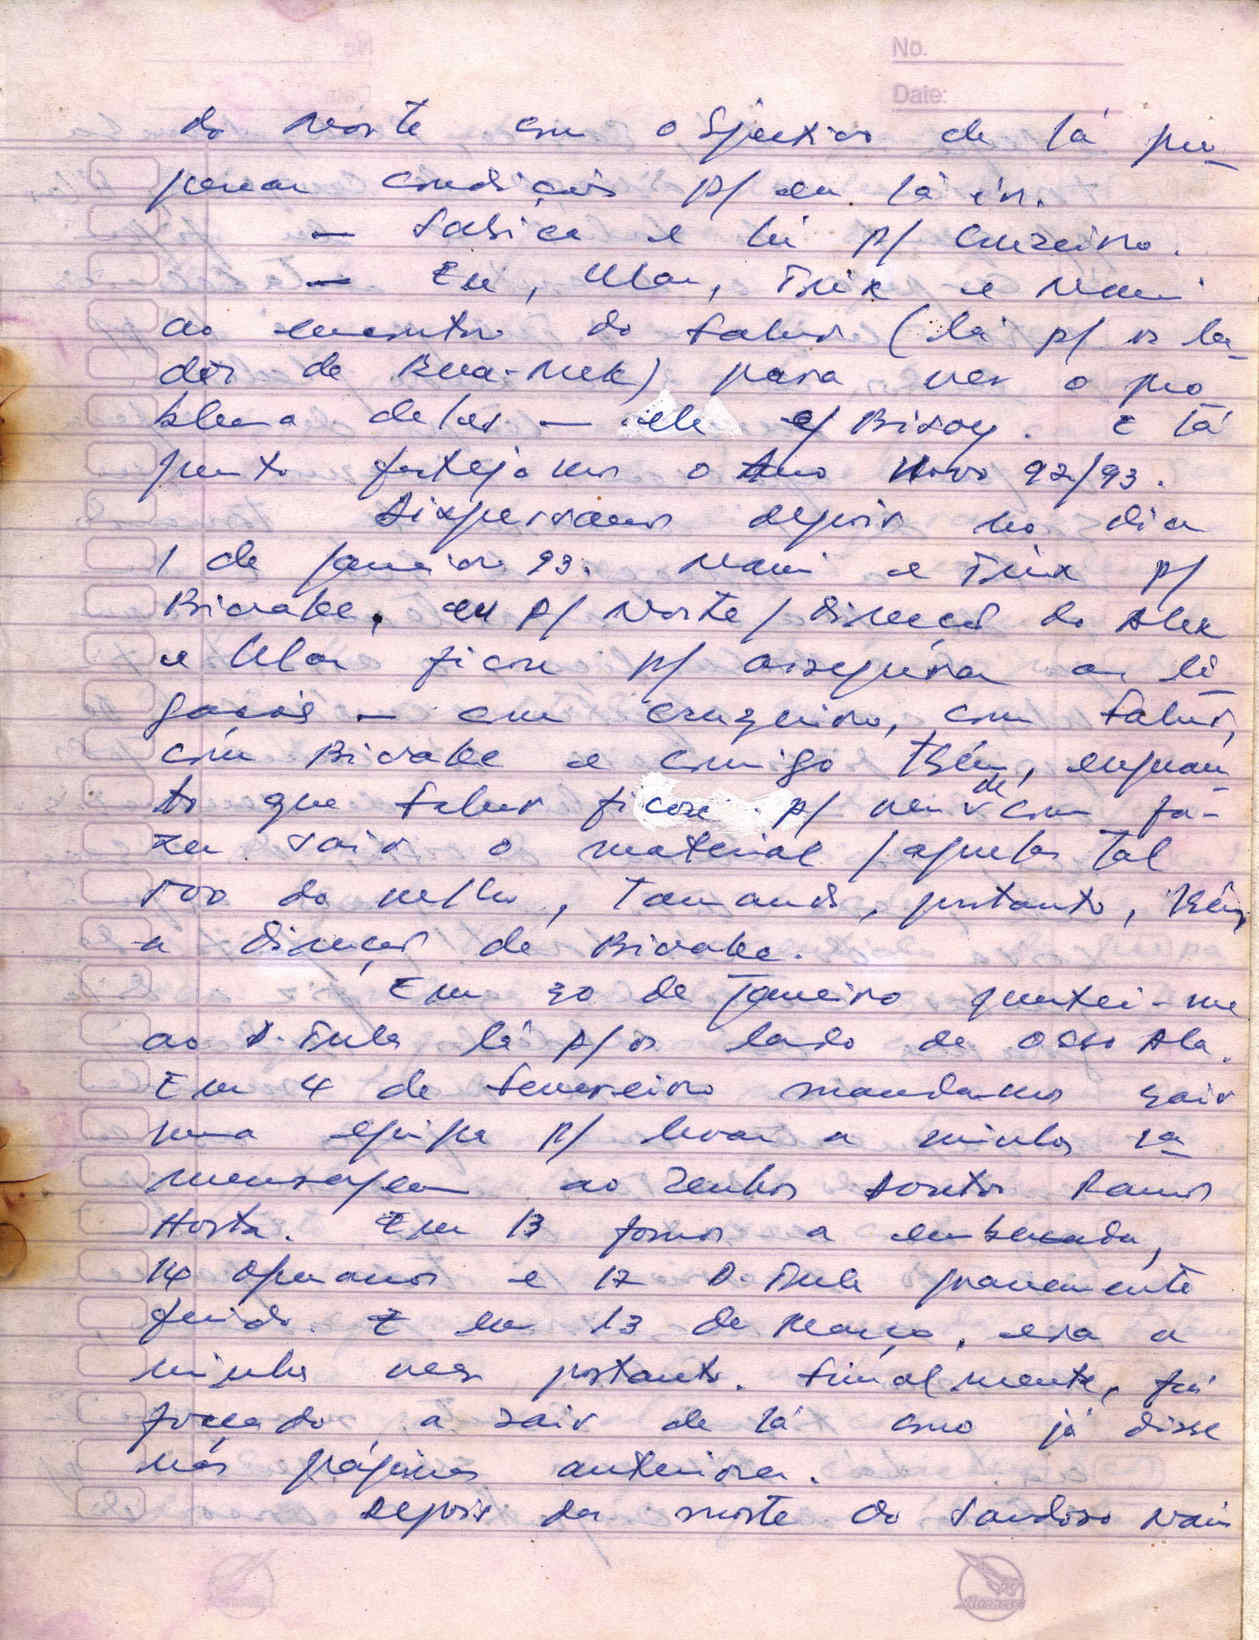 No.
Date:
do Norte com objectivo de lá pre-
parar condições p/ eu lá ir.
— Sabica e Lu p/ Cruzeiro.
— Eu, Ular, Trix e Mau
ao encontro do Sabur (lá p/ os la-
dos de Bua-Mek) para ver o pro-
blema deles — ele e/ Bisoy. E lá
junto festejamos o Ano Novo 92/93.
Dispersamos depois no dia
1 de Janeiro 93. Mau e Trix p/
Bivake, eu p/ Norte/direcção do Alex
e Ular ficou p/ assegurar as li-
gações — com cruzeiro, com Sabur,
com Bivake e comigo tbém, enquan-
to que Sabur ficou p/ ver de com fa-
zer sair o material /aquelas tal
500 do velho, Tomando, portanto, tbém,
a direcção de Bivake.
Em 30 de Janeiro juntei-me
ao D. Tula lá p/ os lado de Osso Ala.
Em 4 de Fevereiro mandamos sair
uma equipa p/ levar a minha 1a
mensagem ao Senhor Doutor Ramos
Horta. Em 13 fomos a emboscada,
14 operamos e 17 D. Tula gravemente
ferido. E em 13 de Março, era a
minha vez portanto. Finalmente, fui
forçado a sair de lá como já disse
nas páginas anteriores.
Depois da morte do saudoso Mau